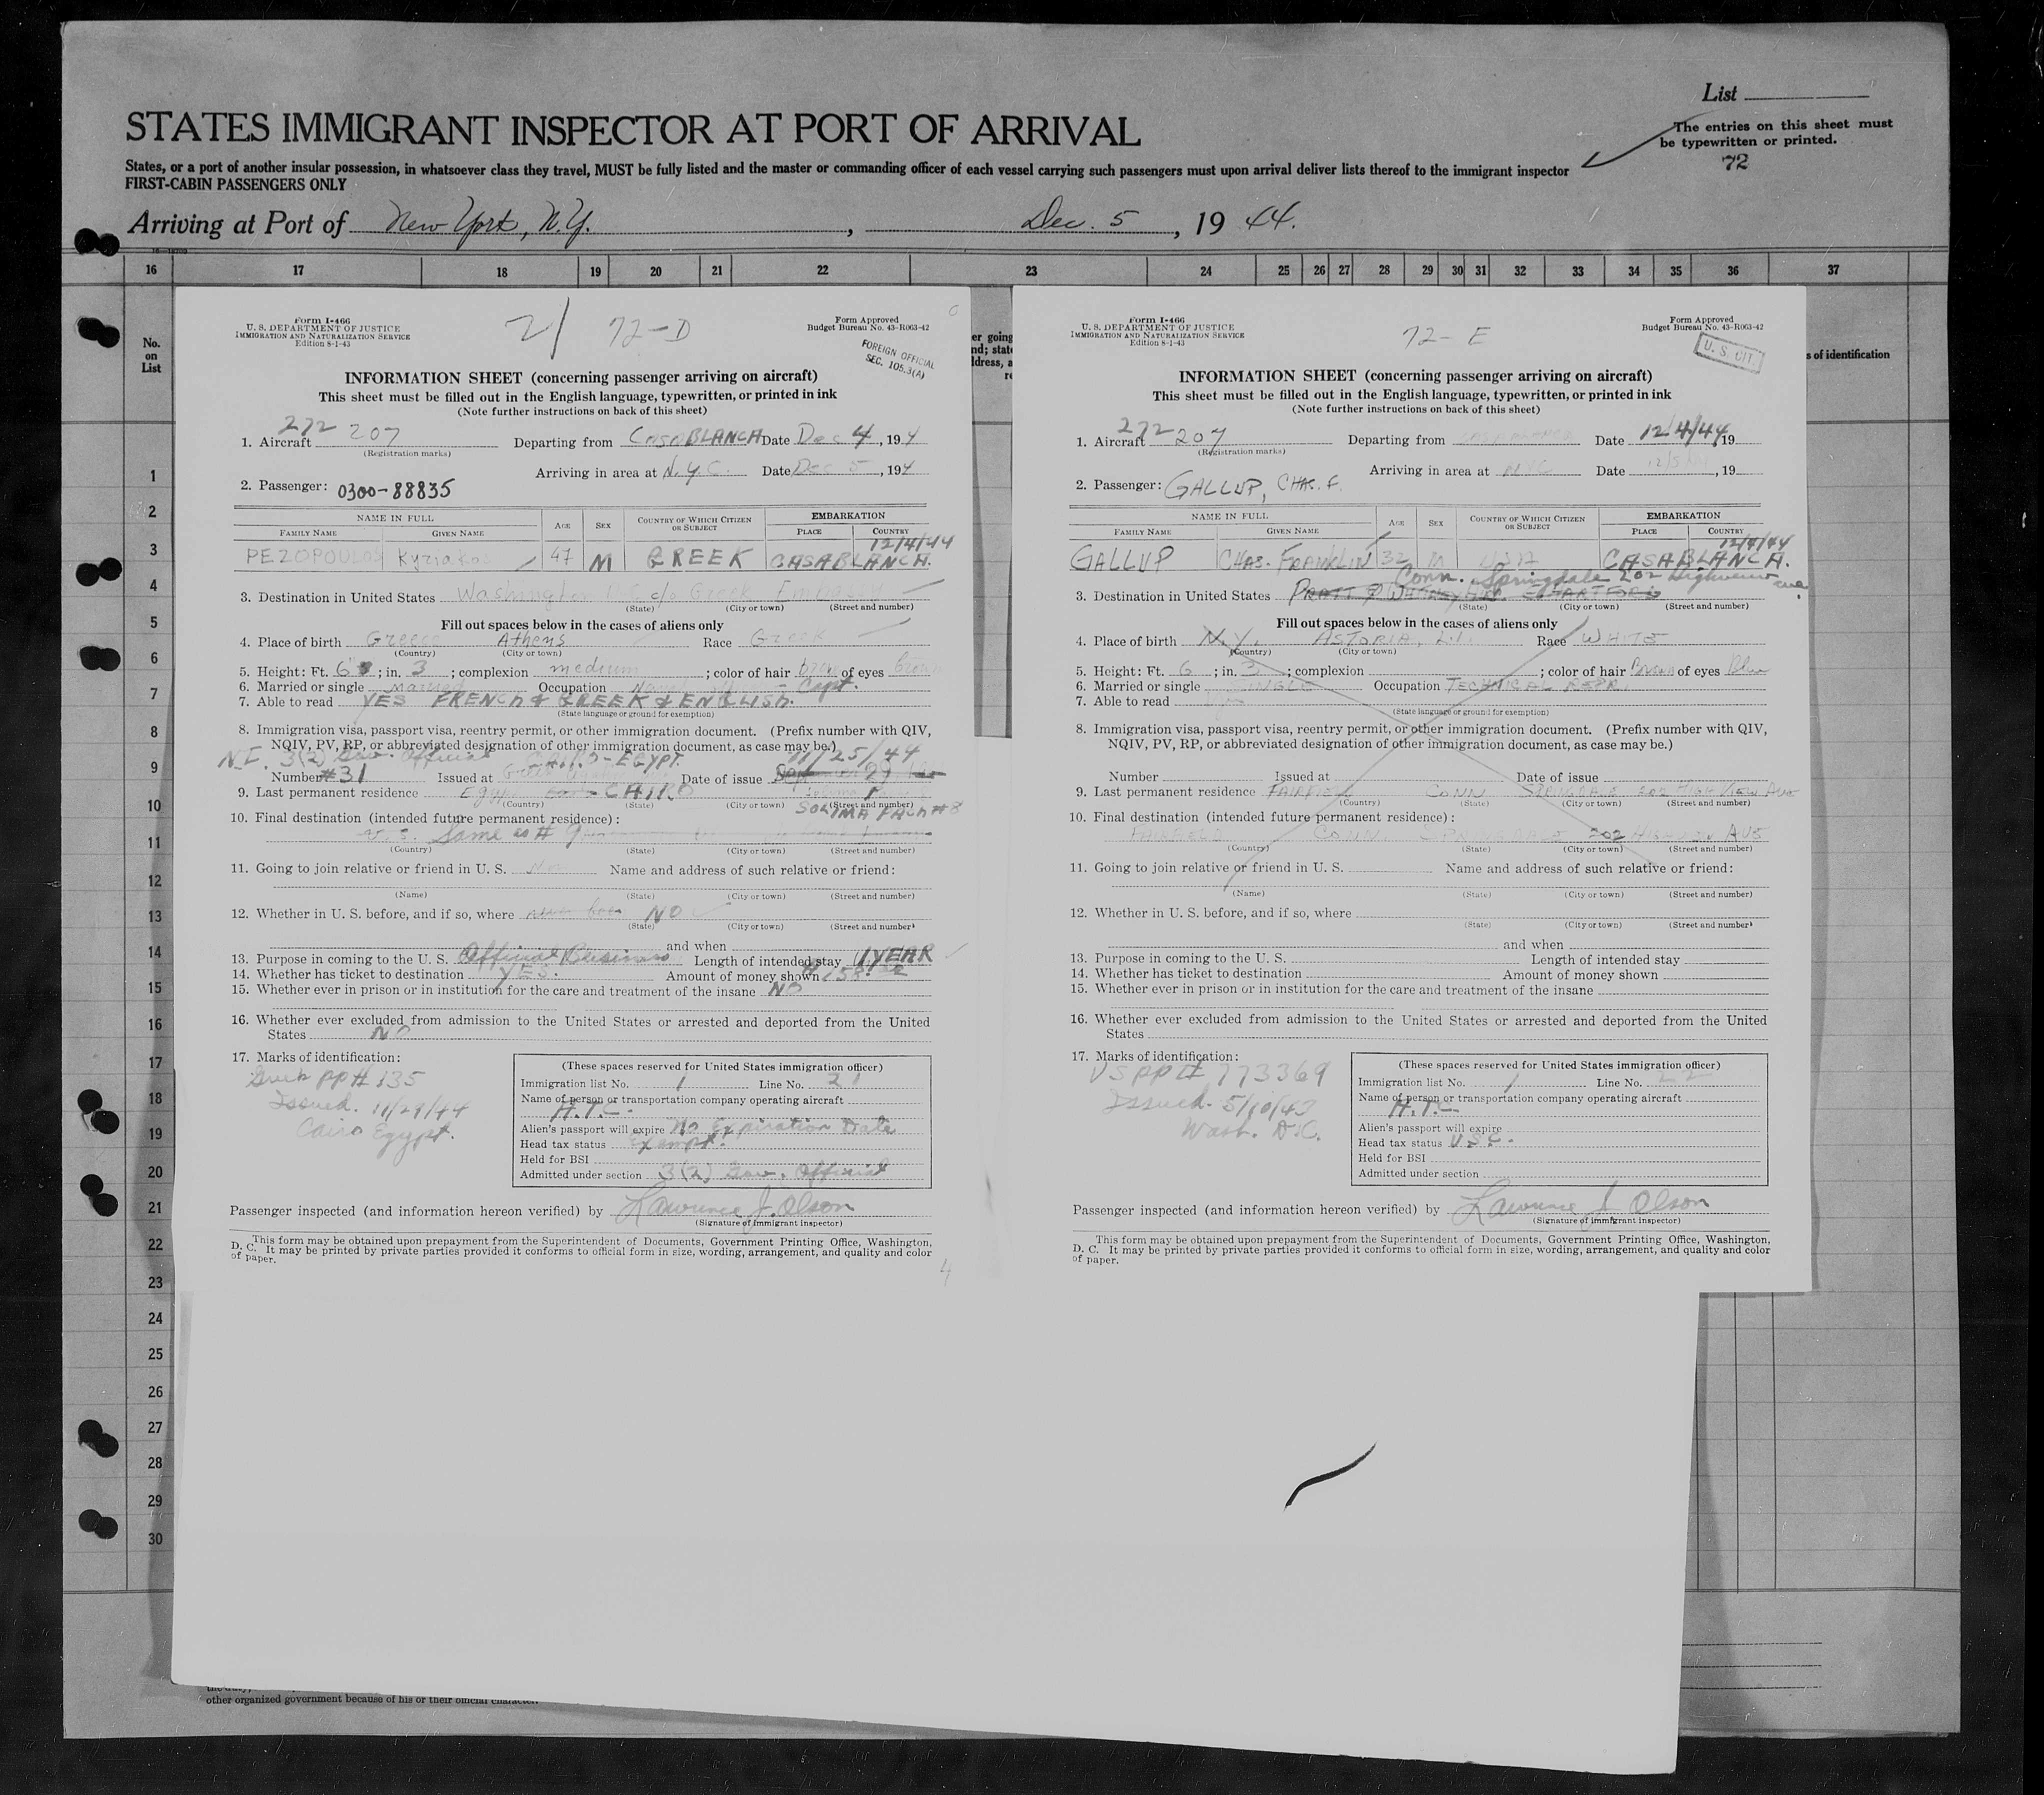 List
STATES IMMIGRANT INSPECTOR AT PORT OF ARRIVAL
The entries on this sheet must
be typewritten or printed.
72
States, or a port of another insular possession, in whatsoever class they travel, MUST be fully listed and the master or commanding officer of each vessel carrying such passengers must upon arrival deliver lists thereof to the immigrant inspector
FIRST-CABIN PASSENGERS ONLY
Arriving at Port of New York, N.Y., Dec. 5, 19 44.
16 17 18 19 20 21 22 23 24 25 26 27 28 29 30 31 32 33 34 35 36 37
No.
on
List
s of identification
1
2
3
4
5
6
7
8
9
10
11
12
13
14
15
16
17
18
19
20
21
22
23
24
25
26
27
28
29
30
Form I-466
U. S. DEPARTMENT OF JUSTICE
IMMIGRATION AND NATURALIZATION SERVICE
Edition 8-1-43
21 72-D
Form Approved
Budget Bureau No. 43-R063-42
FOREIGN OFFICIAL
SEC. 105.3(A)
INFORMATION SHEET (concerning passenger arriving on aircraft)
This sheet must be filled out in the English language, typewritten, or printed in ink
(Note further instructions on back of this sheet)
272
1. Aircraft 207 Departing from CASABLANCA Date Dec 4, 194
(Registration marks)
Arriving in area at N.Y.C. Date Dec 5, 194
2. Passenger: 0300-88835
NAME IN FULL AGE SEX COUNTRY OF WHICH CITIZEN OR SUBJECT EMBARKATION
FAMILY NAME GIVEN NAME PLACE COUNTRY
12/4/44
PEZOPOULOS Kyriakos 47 M GREEK CASABLANCA.
3. Destination in United States Washington c/o Greek
(State) (City or town) (Street and number)
Fill out spaces below in the cases of aliens only
4. Place of birth Greece Athens Race Greek
(Country) (City or town)
5. Height: Ft. 6; in. 3; complexion medium; color of hair brown of eyes brown
6. Married or single married Occupation Capt.
7. Able to read YES FRENCH & GREEK & ENGLISH.
(State language or ground for exemption)
8. Immigration visa, passport visa, reentry permit, or other immigration document. (Prefix number with QIV,
NQIV, PV, RP, or abbreviated designation of other immigration document, as case may be.)
N.I. 3(2) Gov. Official CAIRO-EGYPT. 11/25/44
Number #31 Issued at Date of issue
9. Last permanent residence Egypt CAIRO
(Country) (State) (City or town) (Street and number)
10. Final destination (intended future permanent residence):
Same as # 9
(Country) (State) (City or town) (Street and number)
11. Going to join relative or friend in U. S. No Name and address of such relative or friend:
(Name) (State) (City or town) (Street and number)
12. Whether in U. S. before, and if so, where NO
(State) (City or town) (Street and number)
and when
13. Purpose in coming to the U. S. Official Business Length of intended stay 1 YEAR
14. Whether has ticket to destination YES. Amount of money shown
15. Whether ever in prison or in institution for the care and treatment of the insane NO
16. Whether ever excluded from admission to the United States or arrested and deported from the United
States NO
17. Marks of identification:
Greek PP# 135
Issued. 11/29/44
Cairo Egypt.
(These spaces reserved for United States immigration officer)
Immigration list No. 1 Line No. 21
Name of person or transportation company operating aircraft
A.T.C.
Alien's passport will expire No Expiration Date
Head tax status Exempt.
Held for BSI
Admitted under section 3(2) Gov. Official
Passenger inspected (and information hereon verified) by Lawrence J. Olson
(Signature of immigrant inspector)
This form may be obtained upon prepayment from the Superintendent of Documents, Government Printing Office, Washington,
D. C. It may be printed by private parties provided it conforms to official form in size, wording, arrangement, and quality and color
of paper.
4
Form I-466
U. S. DEPARTMENT OF JUSTICE
IMMIGRATION AND NATURALIZATION SERVICE
Edition 8-1-43
72-E
Form Approved
Budget Bureau No. 43-R063-42
U. S. CIT.
INFORMATION SHEET (concerning passenger arriving on aircraft)
This sheet must be filled out in the English language, typewritten, or printed in ink
(Note further instructions on back of this sheet)
272
1. Aircraft 207 Departing from CASABLANCA Date 12/4/44 19
(Registration marks)
Arriving in area at NYC Date 12/5/44, 19
2. Passenger: GALLUP, CHAS. F.
NAME IN FULL AGE SEX COUNTRY OF WHICH CITIZEN OR SUBJECT EMBARKATION
FAMILY NAME GIVEN NAME PLACE COUNTRY
12/4/44
GALLUP CHAS. FRANKLIN 32 M USA CASABLANCA.
Conn. Springdale 202 Highview ave.
3. Destination in United States PRATT & WHITNEY E. HARTFORD
(State) (City or town) (Street and number)
Fill out spaces below in the cases of aliens only
4. Place of birth N.Y. ASTORIA, L.I. Race WHITE
(Country) (City or town)
5. Height: Ft. 6; in. 3; complexion ; color of hair Brown of eyes Blue
6. Married or single SINGLE Occupation TECHNICAL REPR.
7. Able to read
(State language or ground for exemption)
8. Immigration visa, passport visa, reentry permit, or other immigration document. (Prefix number with QIV,
NQIV, PV, RP, or abbreviated designation of other immigration document, as case may be.)
Number Issued at Date of issue
9. Last permanent residence FAIRFIELD CONN SPRINGDALE 202 HIGHVIEW AVE
(Country) (State) (City or town) (Street and number)
10. Final destination (intended future permanent residence):
FAIRFIELD CONN. SPRINGDALE 202 HIGHVIEW AVE
(Country) (State) (City or town) (Street and number)
11. Going to join relative or friend in U. S. Name and address of such relative or friend:
(Name) (State) (City or town) (Street and number)
12. Whether in U. S. before, and if so, where
(State) (City or town) (Street and number)
and when
13. Purpose in coming to the U. S. Length of intended stay
14. Whether has ticket to destination Amount of money shown
15. Whether ever in prison or in institution for the care and treatment of the insane
16. Whether ever excluded from admission to the United States or arrested and deported from the United
States
17. Marks of identification:
US PP# 773369
Issued. 5/10/43
Wash. D.C.
(These spaces reserved for United States immigration officer)
Immigration list No. 1 Line No. 22
Name of person or transportation company operating aircraft
A.T.C.
Alien's passport will expire
Head tax status U.S.C.
Held for BSI
Admitted under section
Passenger inspected (and information hereon verified) by Lawrence J Olson
(Signature of immigrant inspector)
This form may be obtained upon prepayment from the Superintendent of Documents, Government Printing Office, Washington,
D. C. It may be printed by private parties provided it conforms to official form in size, wording, arrangement, and quality and color
of paper.
other organized government because of his or their official character.